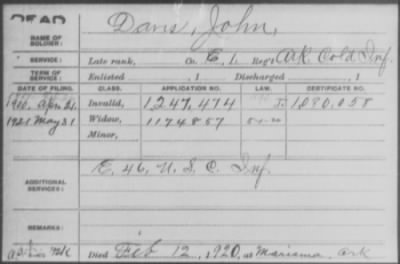 DEAD
NAME OF SOLDIER: Davis, John,
SERVICE: Late rank, Co. E, 1, Reg't Ark Cold Inf.
TERM OF SERVICE: Enlisted , 1 Discharged , 1
DATE OF FILING. CLASS. APPLICATION NO. CERTIFICATE NO.
1900, Apr 21. Invalid, 1,247,474 1,090,058
1921 May 31 Widow, 1174857
Minor,
ADDITIONAL SERVICES: E. 46, U.S.C. Inf.
REMARKS:
Died Feb 12, 1920, at Marianna, Ark